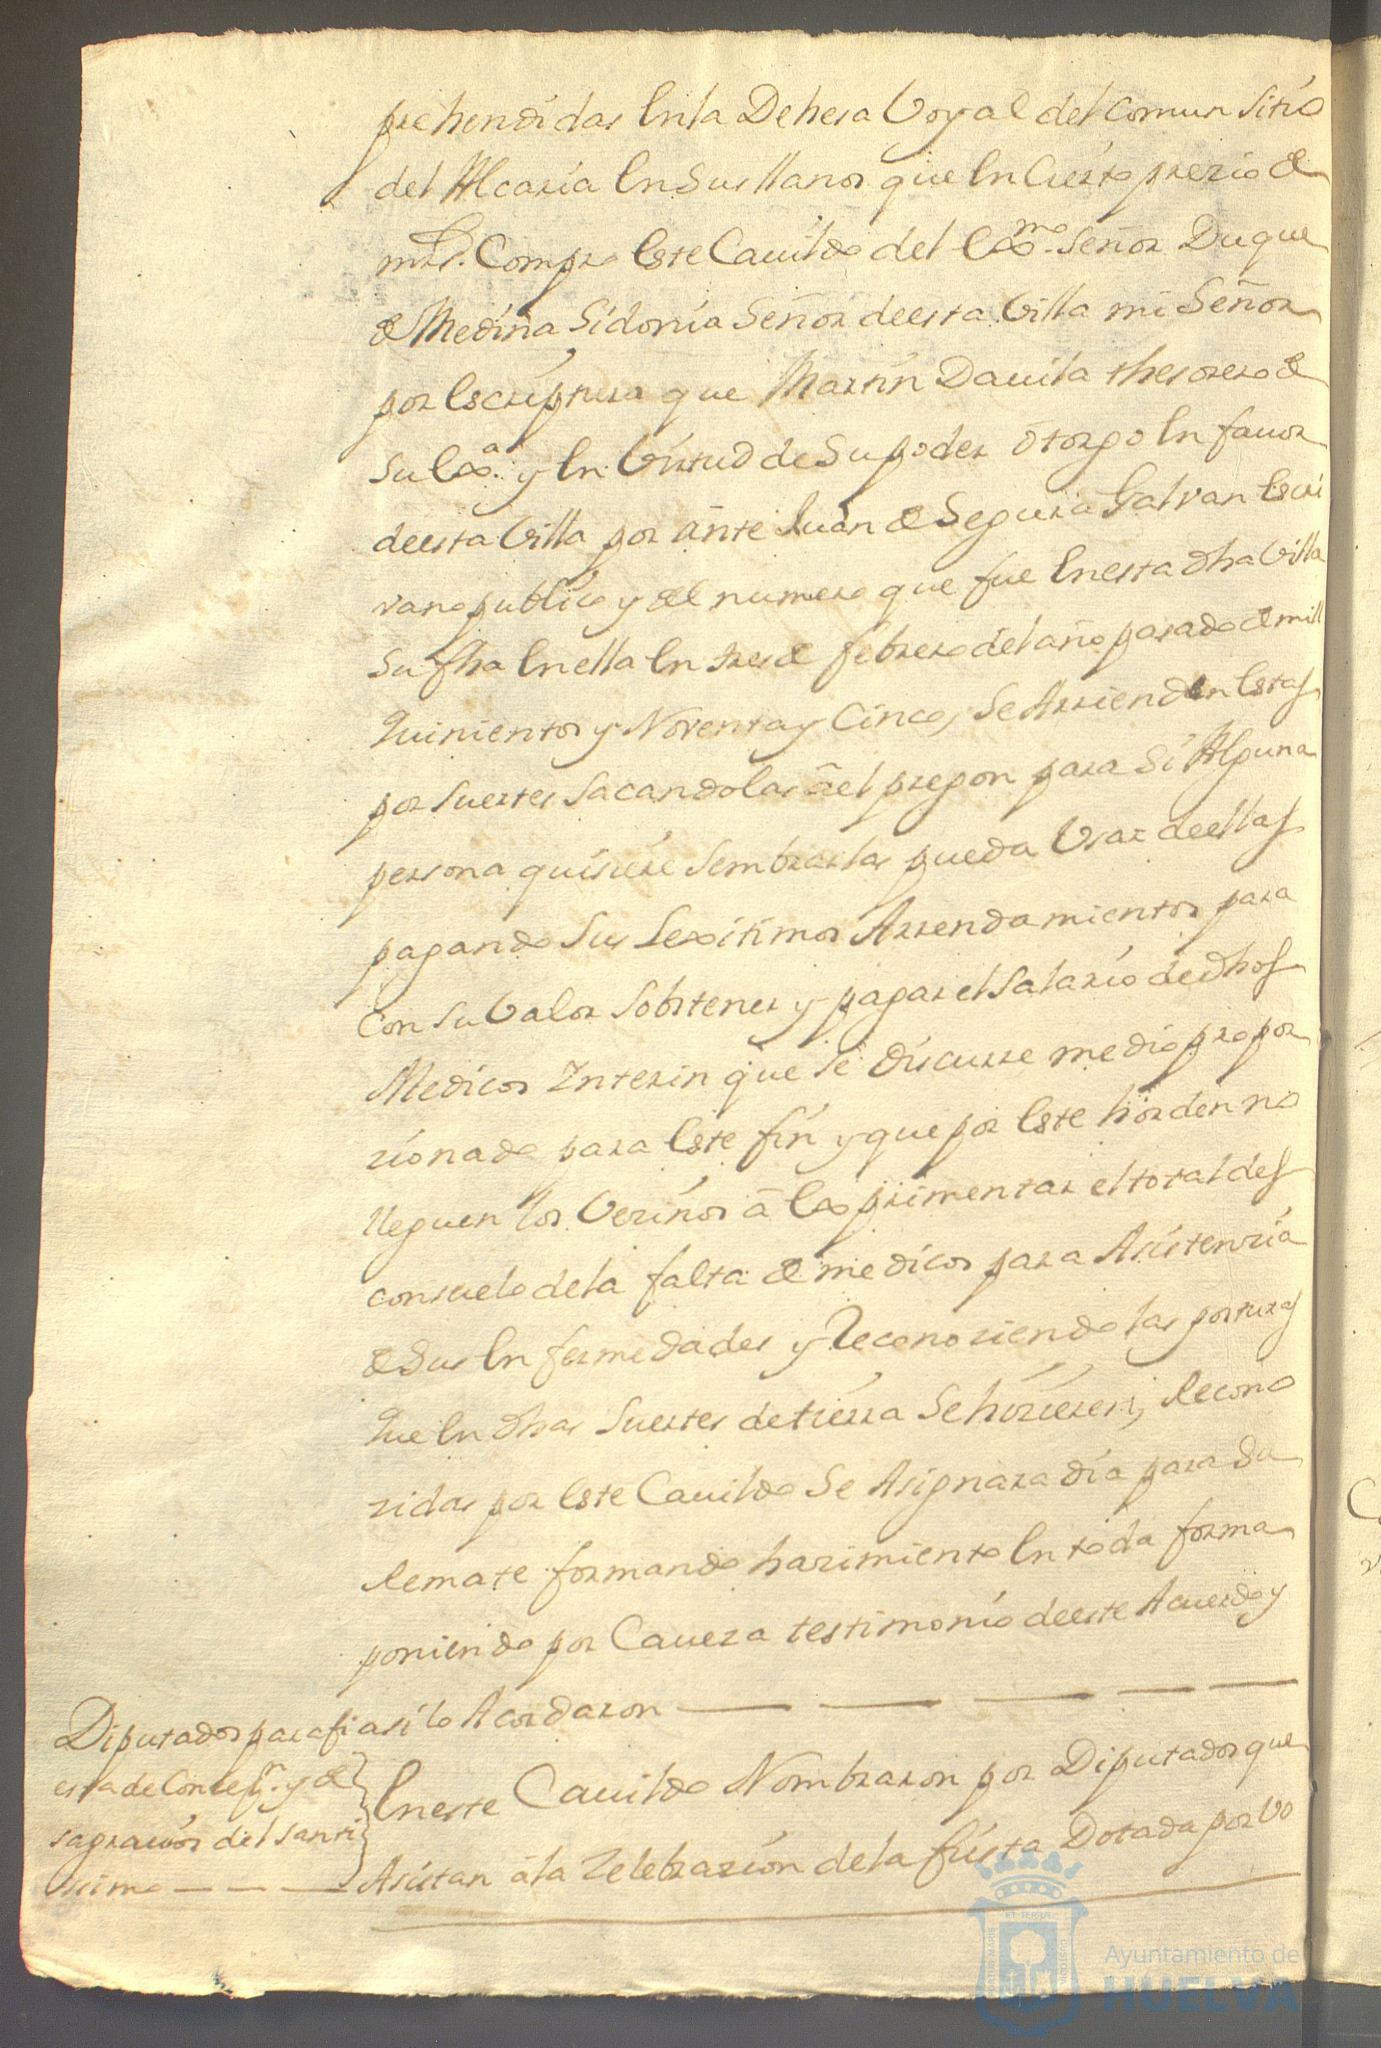 prehendidas en la Dehesa Boyal del comun sitio
del Alcaria en sus llanos que en cierto prezio de
mrs. compro este Cavildo del exmo. Señor Duque
de Medina Sidonia Señor de esta Villa mi Señor
por escriptura que Martin Davila thesorero de
su exa. y en virtud de su poder otorgo en favor
de esta Villa por ante Juan de Segura Galvan escri
vano publico y del numero que fue en esta dha Villa
su fha en ella en tres de febrero del año pasado de mill
quinientos y Noventa y Cinco, se Arrienden estas
por suertes sacandolas a el pregon para si Alguna
persona quisiere sembrarlas pueda Usar de ellas
pagando sus lexitimos Arrendamientos para
con su Valor sobstener y pagar el salario de dhos
Medicos Interin que se discurre medio propor
zionado para este fin y que por este horden no
lleguen los Vezinos a experimentar el total des
consuelo de la falta de medicos para Asistenzia
de sus enfermedades y Reconoziendo las posturas
que en dhas suertes de tierra se hizieren, Recono
zidas por este Cavildo se Asignara dia para su
Remate formando hazimiento en toda forma
poniendo por Caveza testimonio de este Acuerdo y
asi lo Acordaron
Diputados para fi
esta de Concepn. y de
sagravios del santi
ssimo
En este Cavildo Nombraron por Diputados que
Asistan a la Zelebrazion de la fiesta Dotada por Vo
Ayuntamiento de
HUELVA